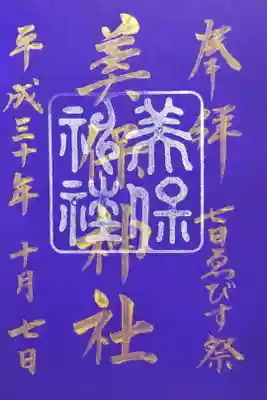 奉拝 七日ゑびす祭
美保神社
美保神社
平成三十年 十月 七日